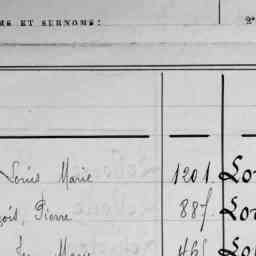 MS ET SURNOMS: 2°
Louis Marie 1201. Lo
çois, Pierre 887. Lo
Marie 465 Lo